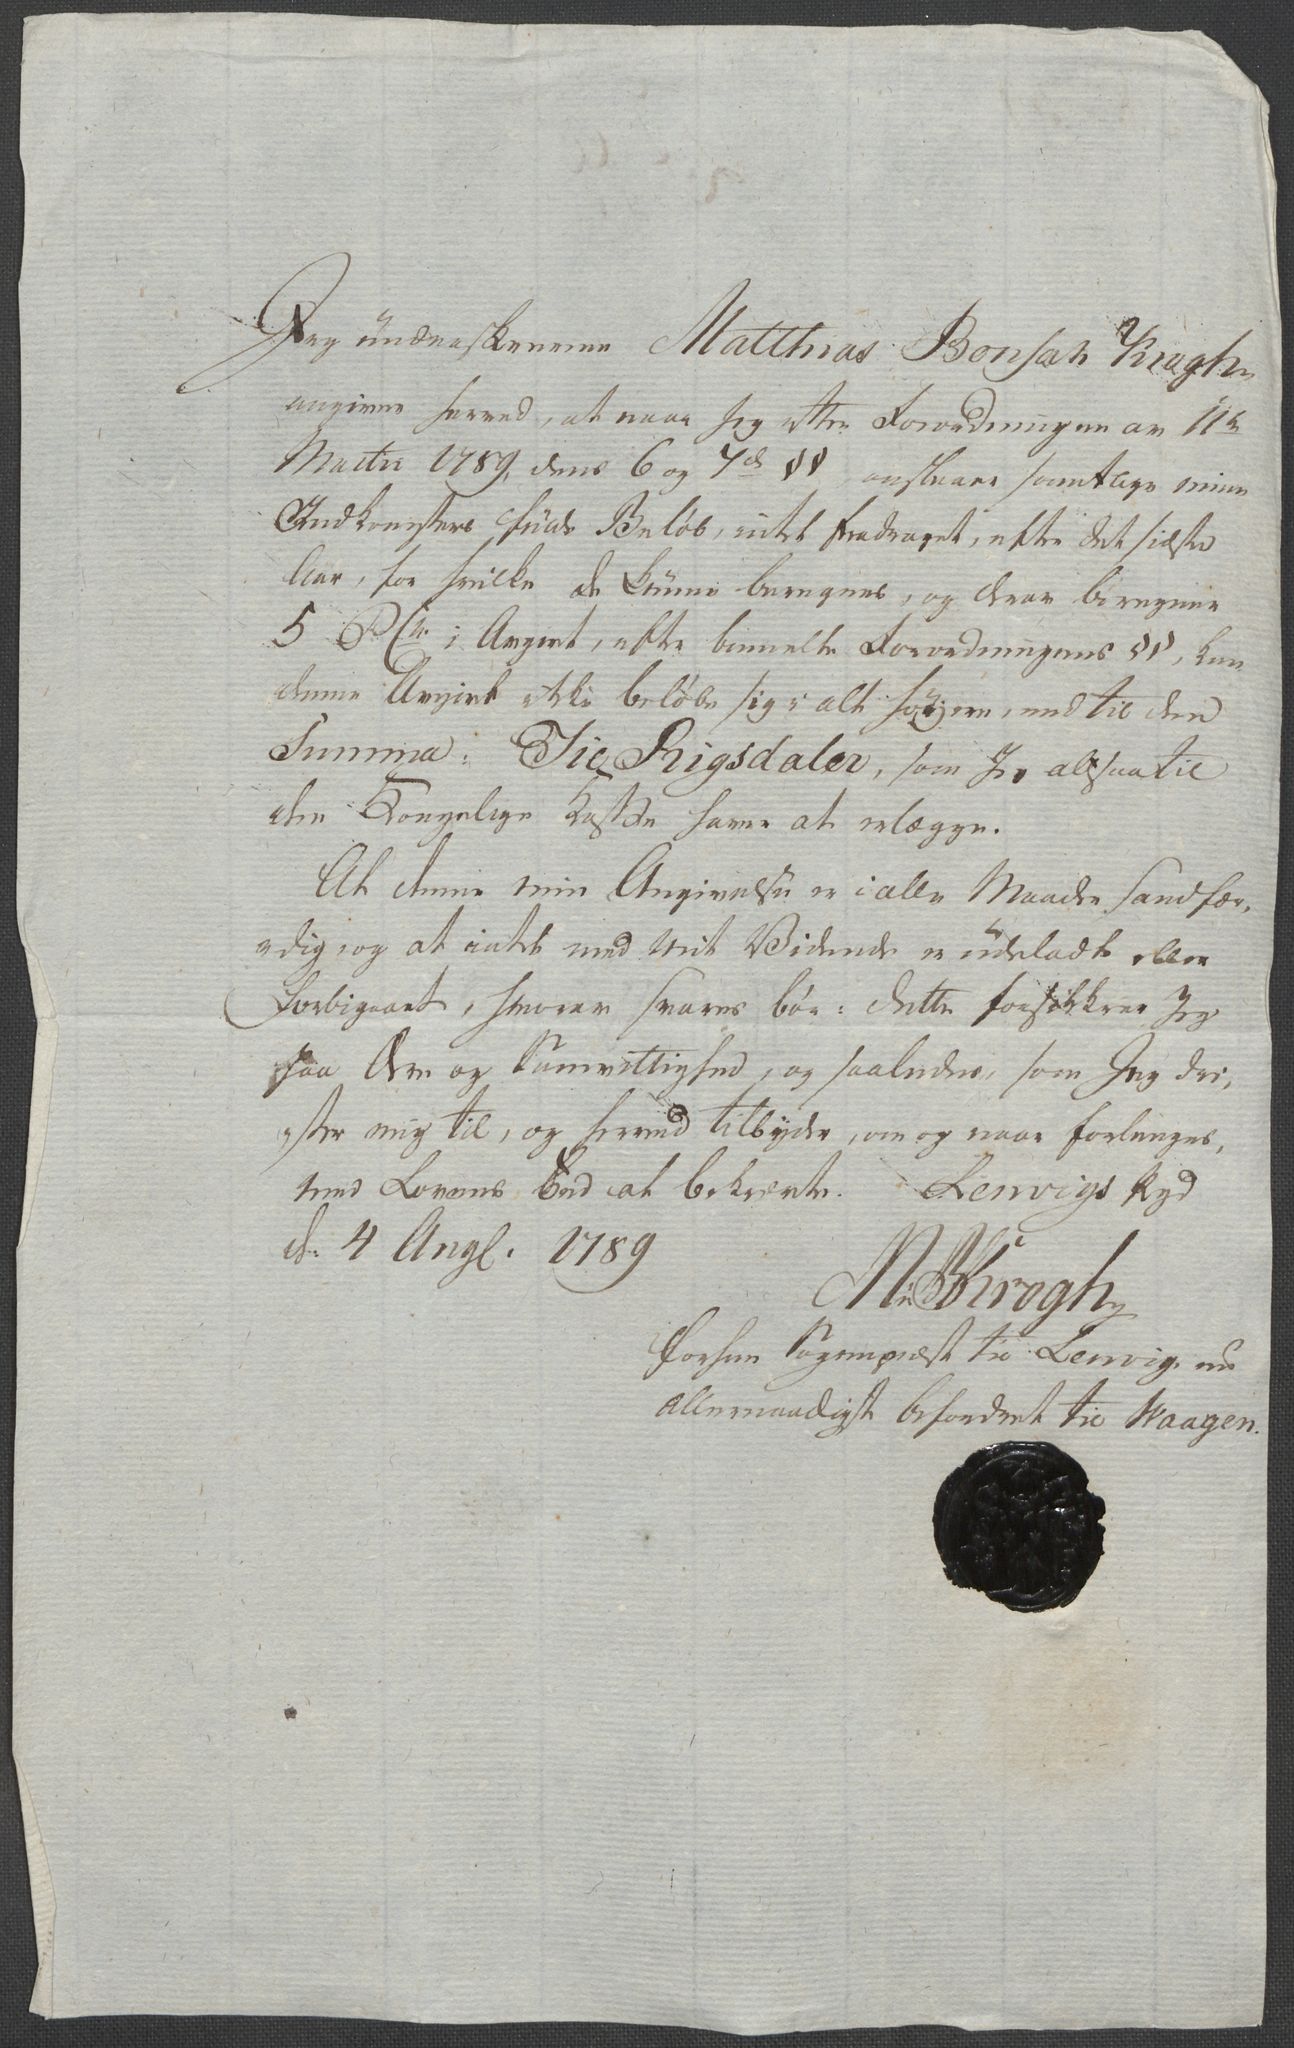 Jeg underskrevne Matthias Bonsak Krogh
angiver herved, at naar Jeg efter Forordningen av 11te
Martii 1789, dens 6 og 7de §§ anslaaer samtlige mine
Indkomsters fulde Beløb, intet fradraget, efter det sidste
Aar, for hvilke de kunne beregnes, og derav beregner
5 PCt. i Avgivt, efter bemelte Forordningens §§, kan
denne Avgivt ikke beløbe sig i alt høyere, end til den
Summa: Tie Rigsdaler, som Jeg altsaa til
den Kongelige Kasse haver at erlægge.
At denne min Angivelse er i alle Maader sandfær,
dig, og at intet med mit Vidende er udeladt eller
forbigaaet, hvorav svares bør: dette forsikkrer Jeg
paa Ære og Samvittighed, og saaledes, som Jeg dri,
ster mig til, og herved tilbyder, om og naar forlanges,
med Lovens Eed at bekræfte. Lenvigs
d. 4 Augl. 1789
MBKrogh
forhen Sogneprest til Lenvig, nu
allernaadigst befordret til Waagen.